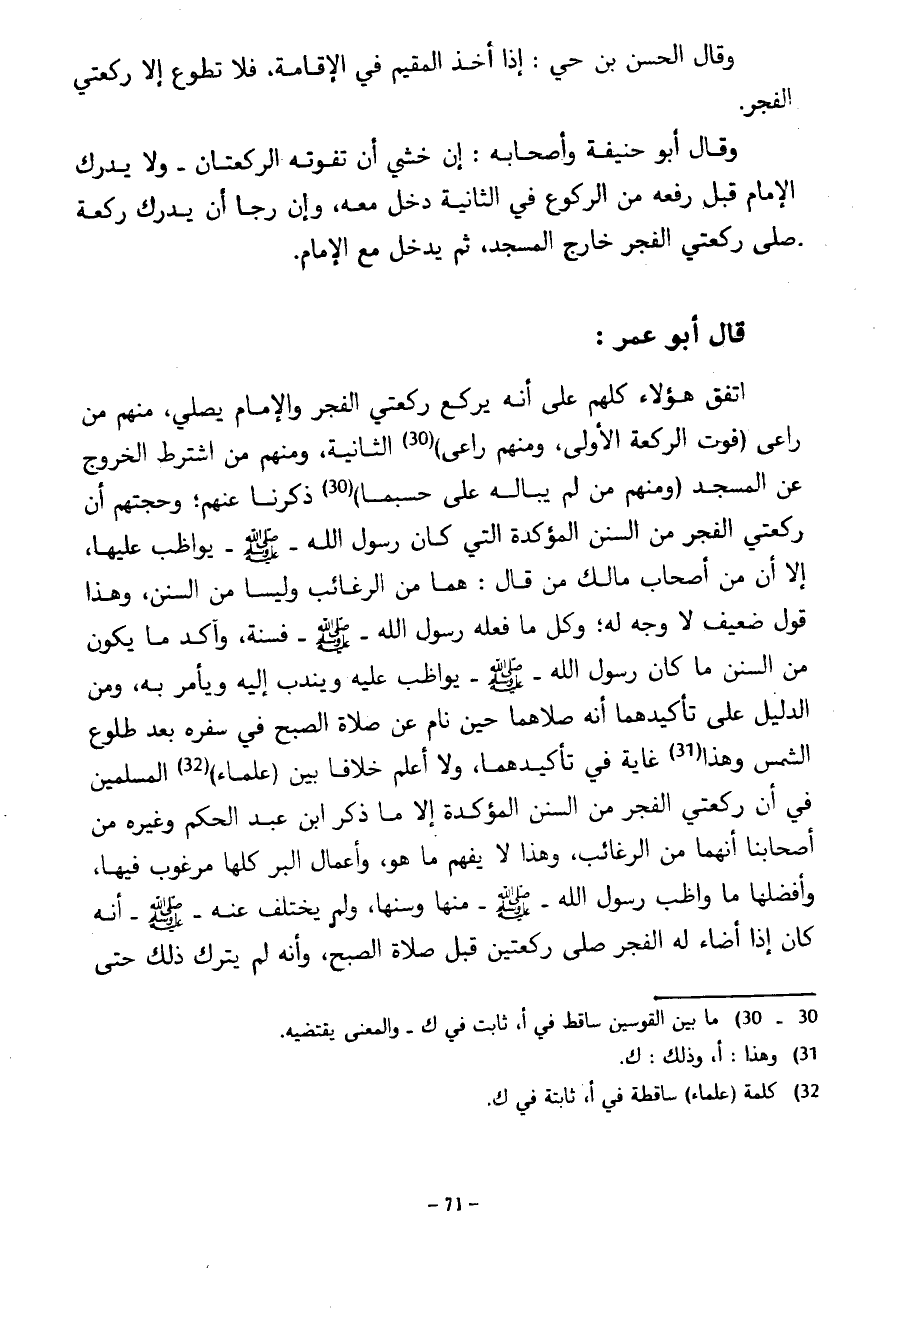 وقال الحسن بن حي : إذا أخذ المقيم في الإقامة، فلا تطوع إلا ركعتي
الفجر.
وقال أبو حنيفة وأصحابه : إن خشي أن تفوته الركعتان ـ ولا يدرك
الإمام قبل رفعه من الركوع في الثانية دخل معه، وإن رجا أن يدرك ركعة
صلى ركعتي الفجر خارج المسجد، ثم يدخل مع الإمام.
قال أبو عمر :
اتفق هؤلاء كلهم على أنه يركع ركعتي الفجر والإمام يصلي، منهم من
راعى (فوت الركعة الأولى، ومنهم راعى)(30) الثانية، ومنهم من اشترط الخروج
عن المسجد (ومنهم من لم يباله على حسبما)(30) ذكرنا عنهم؛ وحجتهم أن
ركعتي الفجر من السنن المؤكدة التي كان رسول الله ـ ﷺ ـ يواظب عليها،
إلا أن من أصحاب مالك من قال : هما من الرغائب وليسا من السنن، وهذا
قول ضعيف لا وجه له؛ وكل ما فعله رسول الله ـ ﷺ ـ فسنة، وآكد ما يكون
من السنن ما كان رسول الله ـ ﷺ ـ يواظب عليه ويندب إليه ويأمر به، ومن
الدليل على تأكيدهما أنه صلاهما حين نام عن صلاة الصبح في سفره بعد طلوع
الشمس وهذا(31) غاية في تأكيدهما، ولا أعلم خلافا بين (علماء)(32) المسلمين
في أن ركعتي الفجر من السنن المؤكدة إلا ما ذكر ابن عبد الحكم وغيره من
أصحابنا أنهما من الرغائب، وهذا لا يفهم ما هو، وأعمال البر كلها مرغوب فيها،
وأفضلها ما واظب رسول الله ـ ﷺ ـ منها وسنها، ولم يختلف عنه ـ ﷺ ـ أنه
كان إذا أضاء له الفجر صلى ركعتين قبل صلاة الصبح، وأنه لم يترك ذلك حتى
30 ـ 30) ما بين القوسين ساقط في أ، ثابت في ك ـ والمعنى يقتضيه.
31) وهذا : أ، وذلك : ك.
32) كلمة (علماء) ساقطة في أ، ثابتة في ك.
- 71 -